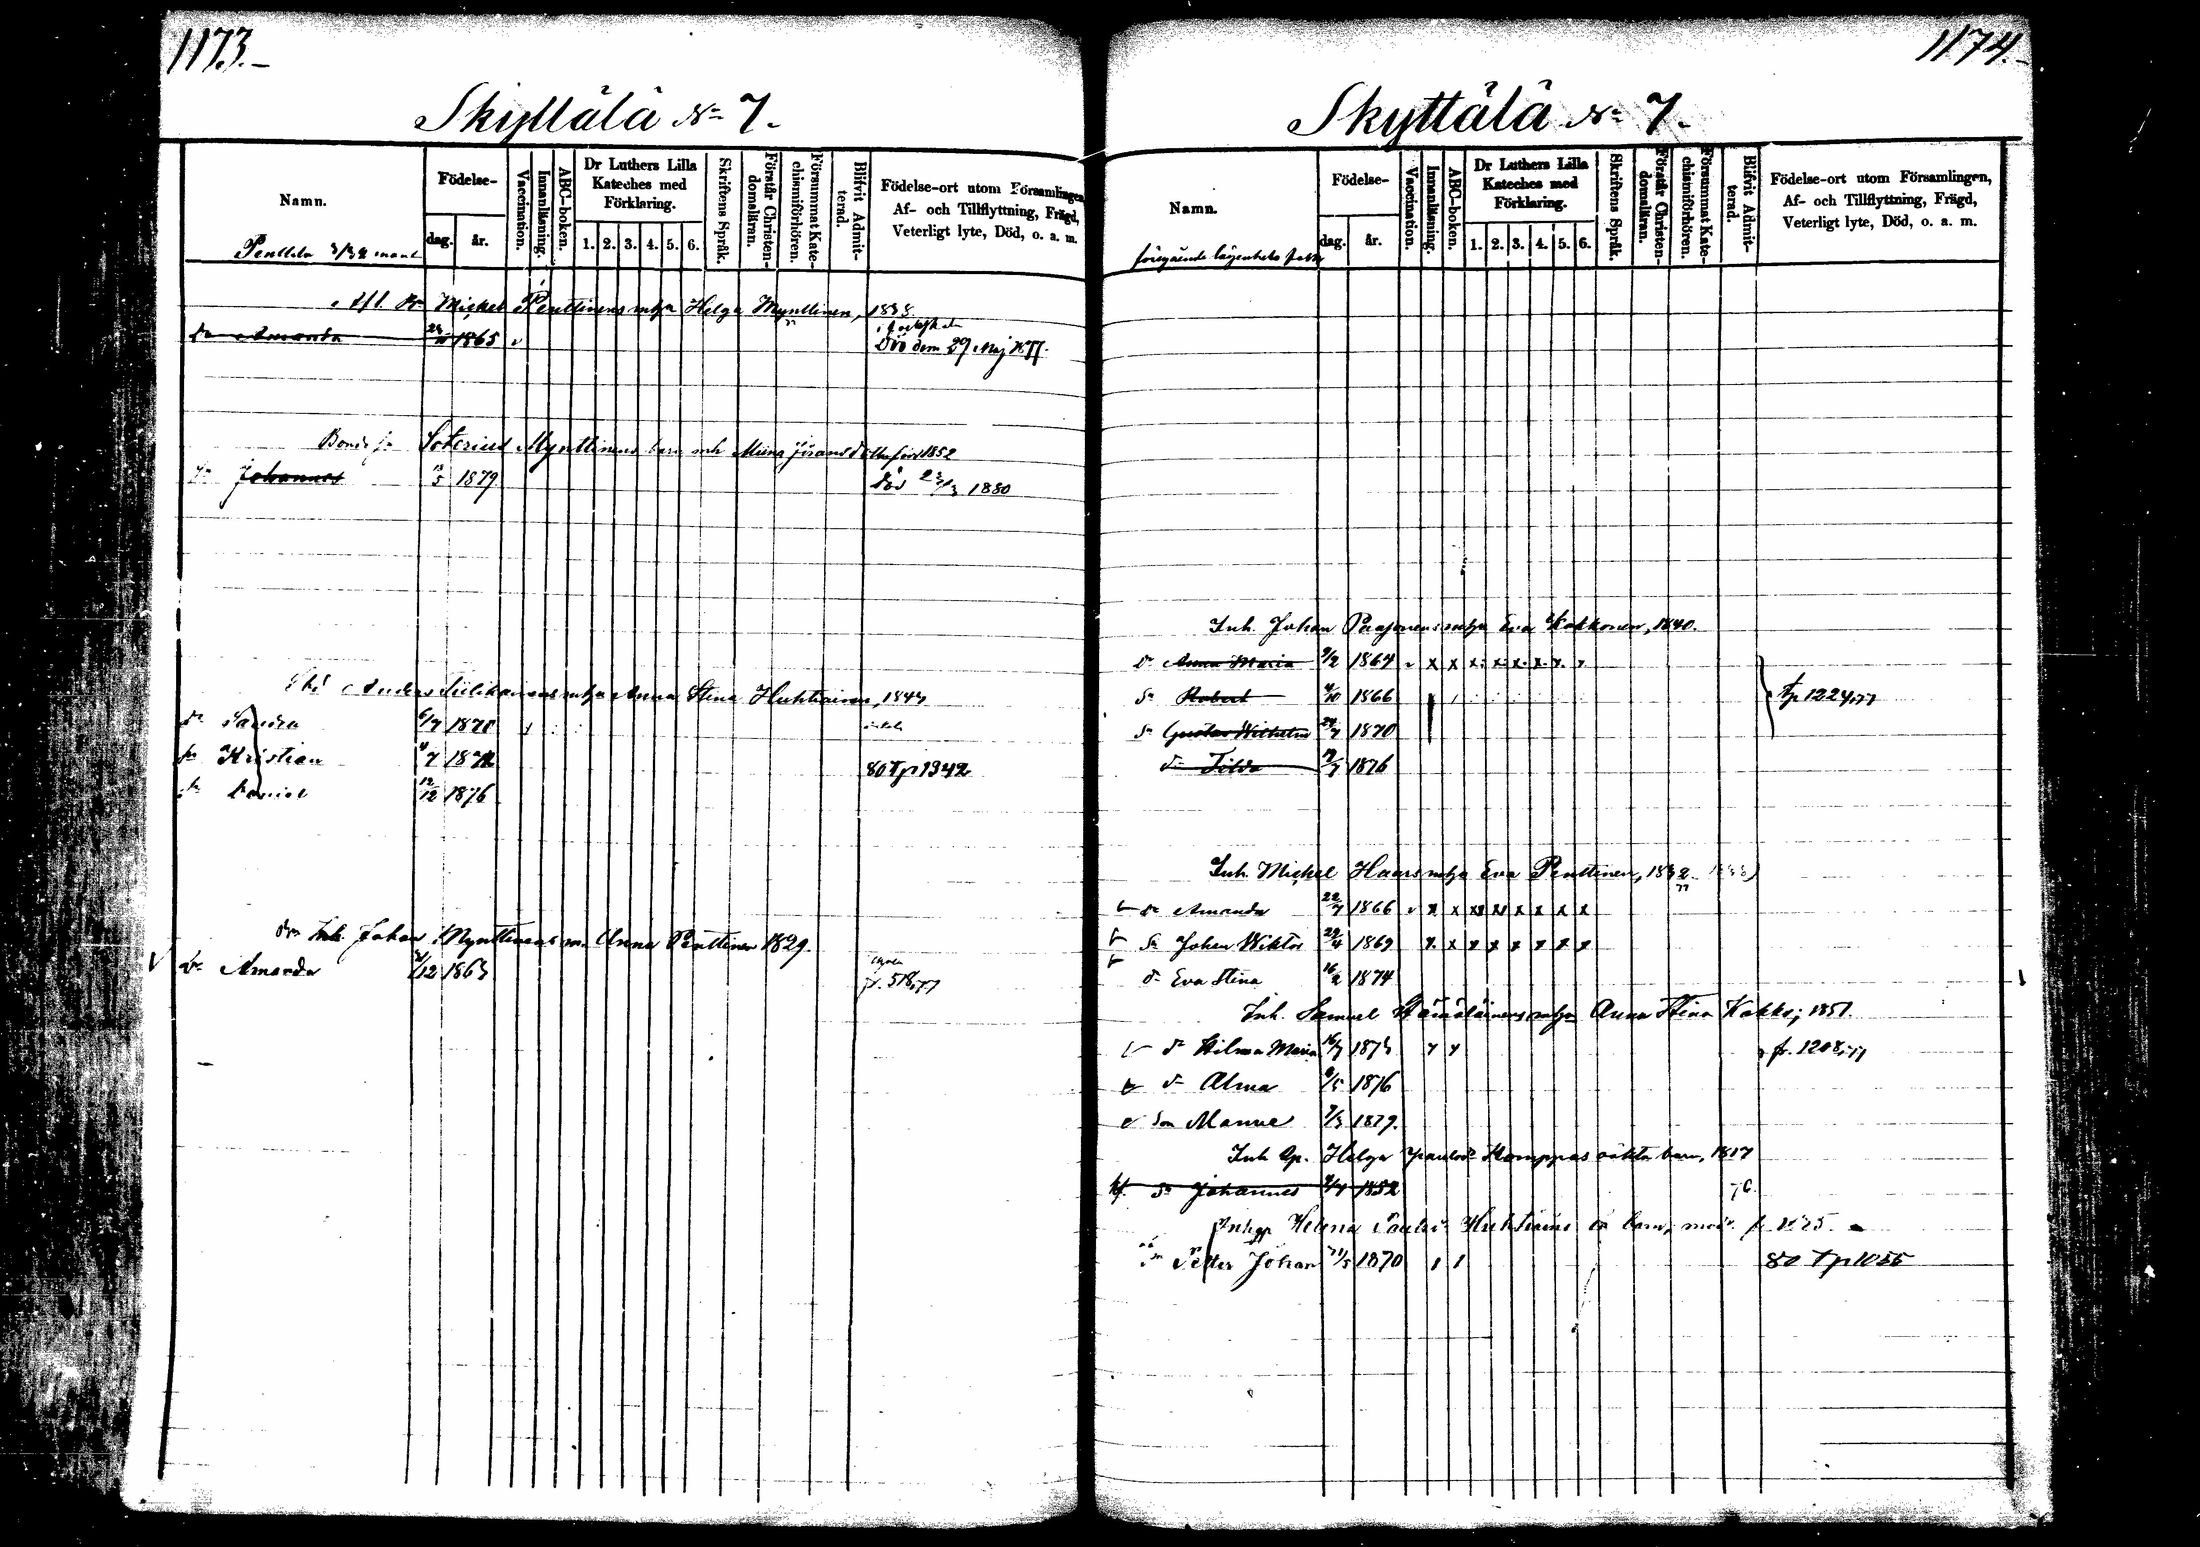 1173.
Skyttälä No 7.
Namn.
Födelse-
dag.
år.
Vaccination.
Innanläsning.
ABC-boken.
Dr Luthers Lilla
Kateches med
Förklaring.
1. 2. 3. 4. 5. 6.
Skriftens Språk.
Förstår Christen-
domsläran.
Försummat Kate-
chismiförhören.
Blifvit Admit-
terad.
Födelse-ort utom Församlingen,
Af- och Tillflyttning, Frägd,
Veterligt lyte, Död, o. a. m.
Penttila 3/32 mant
Afl. Michel Penttinens enka Helga Mynttinen, 1838.
dr Amanda 1865
Död den 29 Maj
Bond. Soterius Mynttinens barn mh Miina född 1852
sn Johannes 13/5 1879 död 23/3 1880
Anders enka Anna Stina Huhtiainen, 1843
dr Sandra 6/7 1870
sn Kristian 4/7 1872 80 tp 1342
sn Daniel 12/12 1876
Inh. Johan Mynttinens m. Anna Penttinen 1829.
dr Amanda 2/12 1863 fr. 518,77
1174.
Skyttälä No 7.
Namn.
Födelse-
dag.
år.
Vaccination.
Innanläsning.
ABC-boken.
Dr Luthers Lilla
Kateches med
Förklaring.
1. 2. 3. 4. 5. 6.
Skriftens Språk.
Förstår Christen-
domsläran.
Försummat Kate-
chismiförhören.
Blifvit Admit-
terad.
Födelse-ort utom Församlingen,
Af- och Tillflyttning, Frägd,
Veterligt lyte, Död, o. a. m.
föregående lägenhets
Inh. Johan Paajonens enka Eva Kokkonen, 1840.
dr Anna Maria 9/2 1864 x x x x x x x
sn Robert 4/10 1866 tp 1224,77
sn Gustav Wilhelm 24/7 1870
dr Tilda 1876
Inh. Michel Haars enka Eva Penttinen, 1832
dr Amanda 22/7 1866 x x x x x x x x
sn Johan Wiktor 29/4 1869 x x x x x x x x
dr Eva Stina 16/2 1874
Inh. Samuel enka Anna Stina Kokko, 1851.
dr Hilma Maria 16/7 1873 fr. 1208,77
dr Alma 6/5 1876
son Manne 7/3 1879.
Inh. Helga Komppas oäkta barn, 1817
sn Johannes 1852 76.
Helena Huhtiains oä barn, mod. f. 1825
sn Petter Johan 1870 80 tp 1055